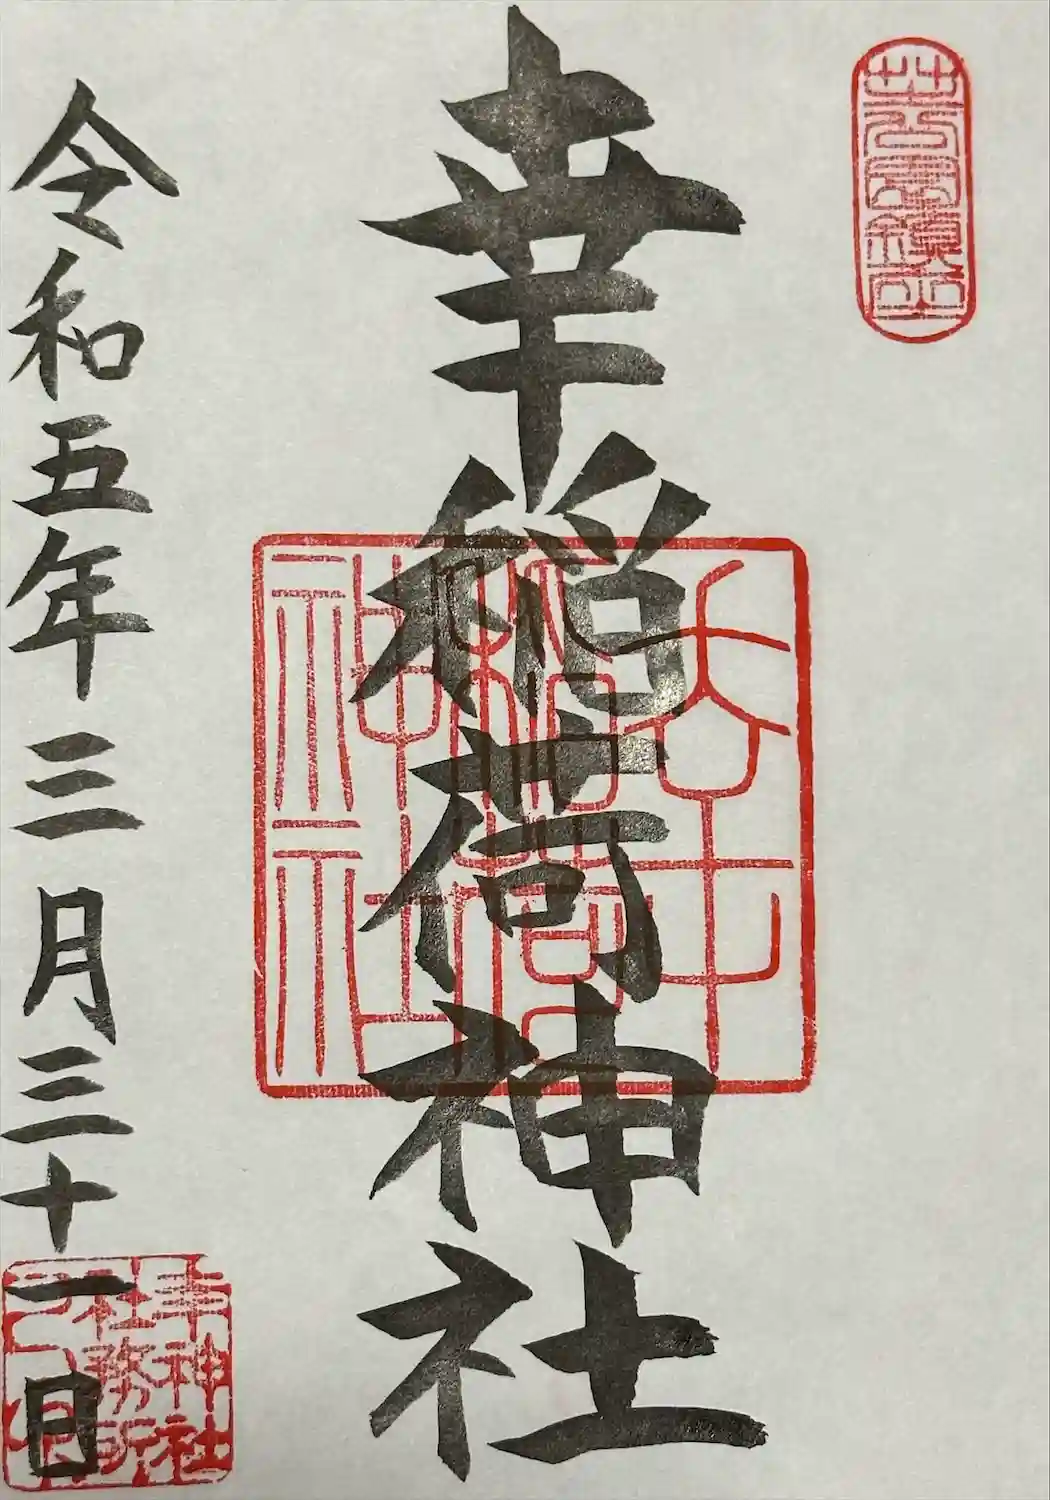 幸稲荷神社
令和五年三月三十一日
幸稲荷神社
幸神社
社務所